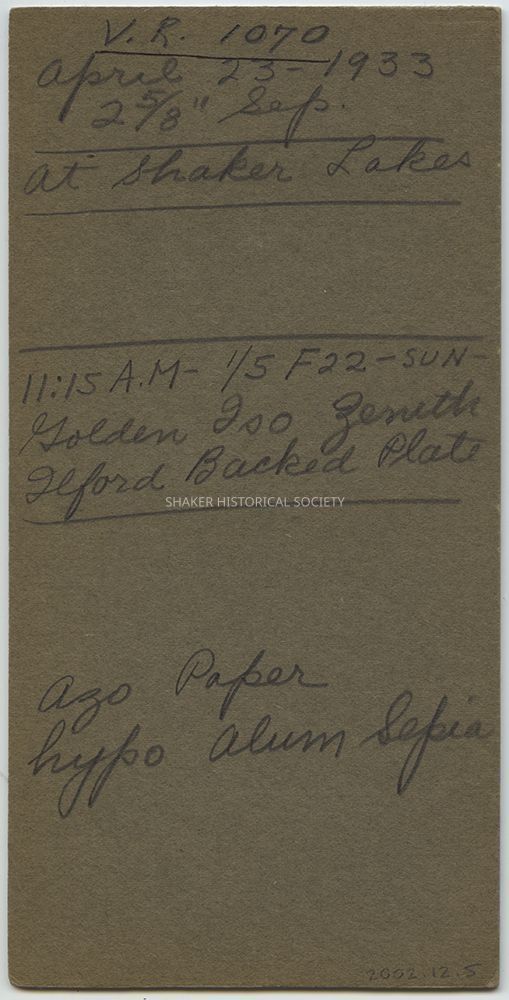 V.R. 1070
April 23-1933
2 5/8" Sep.
At Shaker Lakes
11:15 A.M- 1/5 F22-SUN-
Golden Iso Zenith
Ilford Backed Plate
SHAKER HISTORICAL SOCIETY
Azo Paper
hypo Alum Sepia
2002.12.5